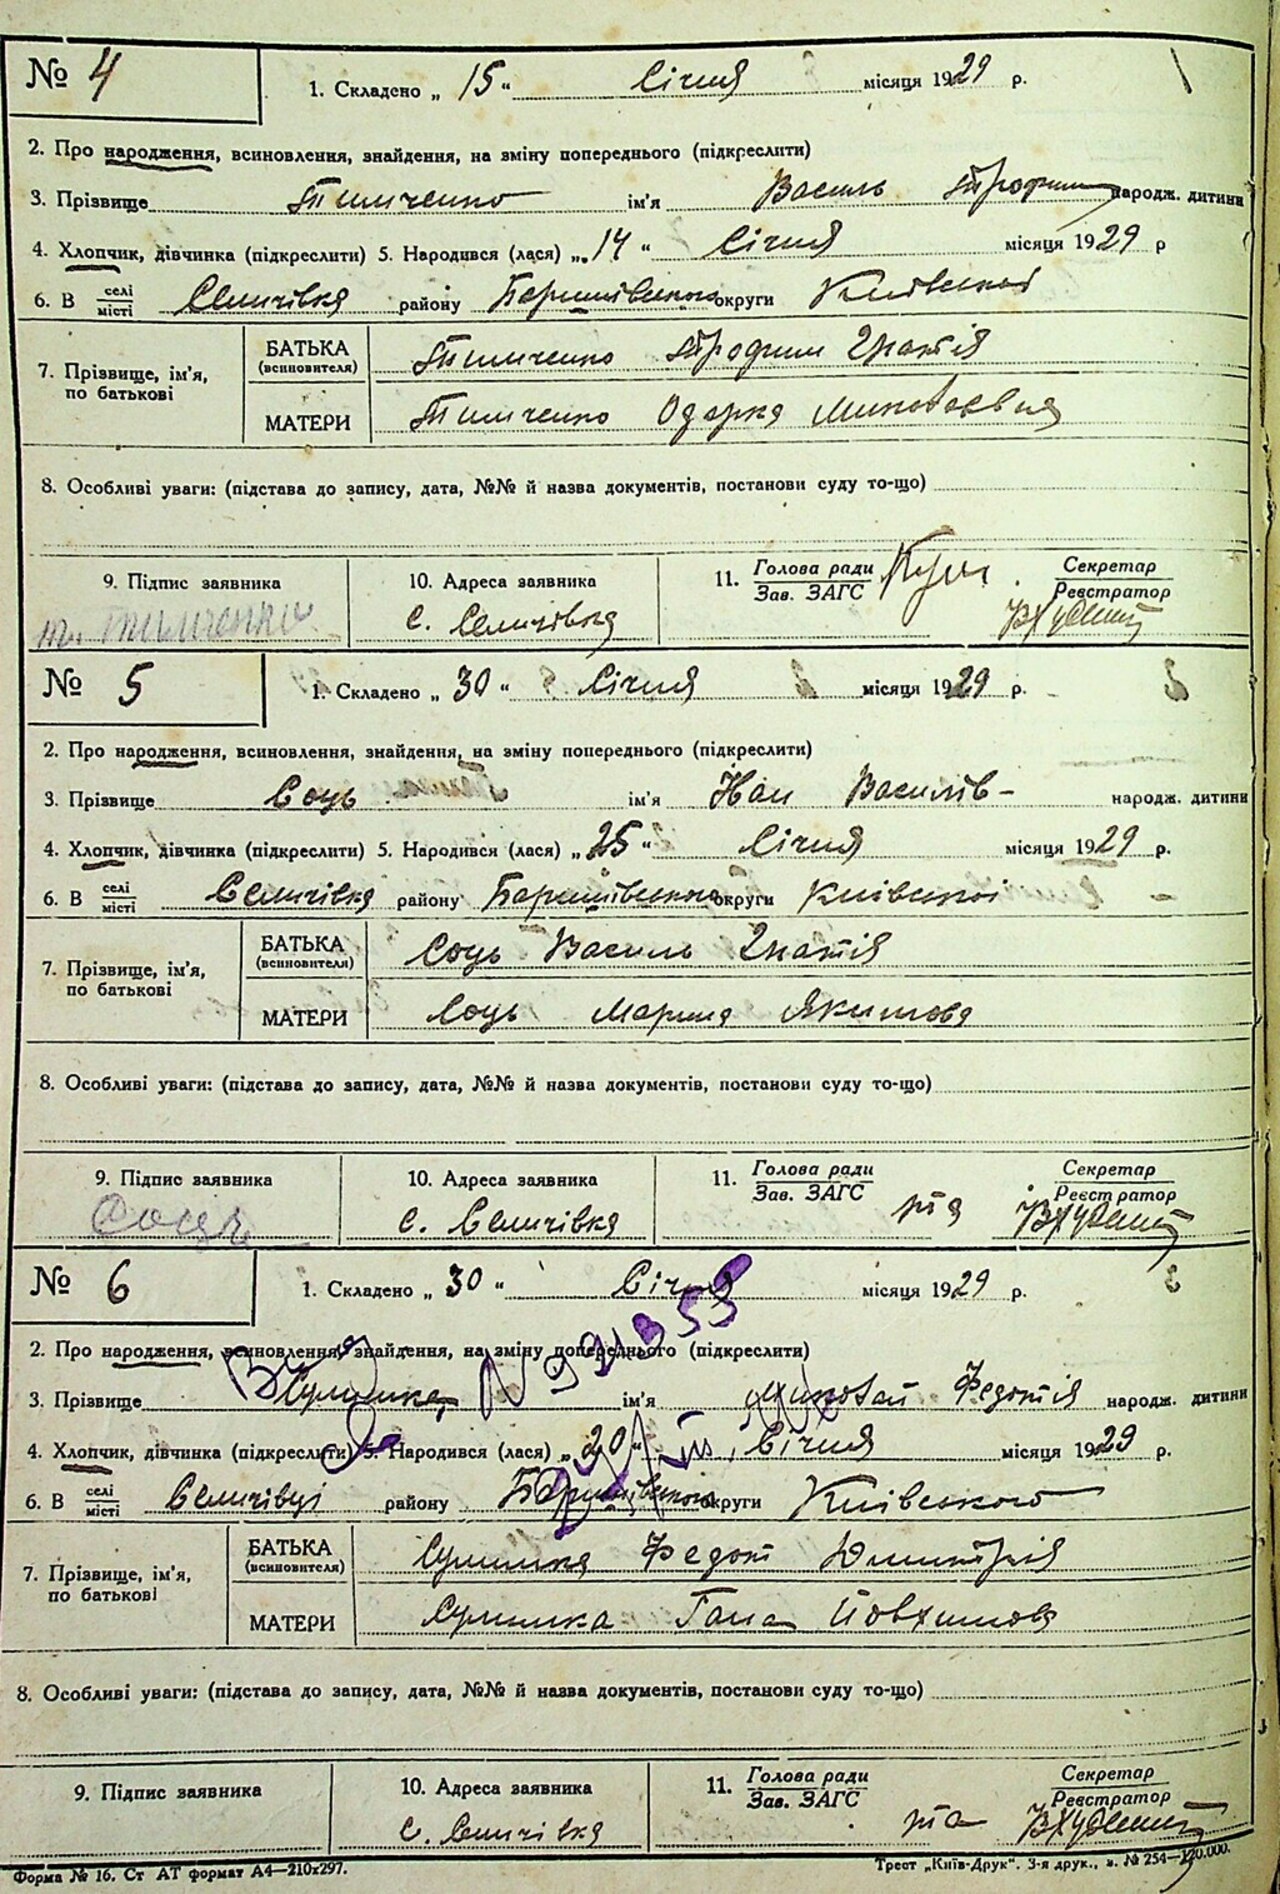 № 4 1. Складено „ 15 “ Січня місяця 1929 р.
2. Про народження, всиновлення, знайдення, на зміну попереднього (підкреслити)
3. Прізвище Тимченко ім'я Василь Трофим народж. дитини
4. Хлопчик, дівчинка (підкреслити) 5. Народився (лася) „ 14 “ Січня місяця 1929 р
6. В селі місті Селичівка району Баришівського округи Київської
7. Прізвище, ім'я, по батькові
БАТЬКА (всиновителя) Тимченко Трофим Гнатія
МАТЕРИ Тимченко Одарка Миколаєвна
8. Особливі уваги: (підстава до запису, дата, №№ й назва документів, постанови суду то-що)
9. Підпис заявника 10. Адреса заявника 11. Голова ради Секретар
Зав. ЗАГС Реєстратор
Тимченко с. Селичівка
№ 5 1. Складено „ 30 “ Січня місяця 1929 р.
2. Про народження, всиновлення, знайдення, на зміну попереднього (підкреслити)
3. Прізвище Соць ім'я Йван Василів- народж. дитини
4. Хлопчик, дівчинка (підкреслити) 5. Народився (лася) „ 25 “ Січня місяця 1929 р.
6. В селі місті Селичівка району Баришівського округи Київської
7. Прізвище, ім'я, по батькові
БАТЬКА (всиновителя) Соць Василь Гнатія
МАТЕРИ Соць Марина Якимова
8. Особливі уваги: (підстава до запису, дата, №№ й назва документів, постанови суду то-що)
9. Підпис заявника 10. Адреса заявника 11. Голова ради Секретар
Зав. ЗАГС Реєстратор
Соць с. Селичівка
№ 6 1. Складено „ 30 “ Січня місяця 1929 р.
2. Про народження, всиновлення, знайдення, на зміну попереднього (підкреслити)
3. Прізвище Сулимка ім'я Миколай Федотія народж. дитини
4. Хлопчик, дівчинка (підкреслити) 5. Народився (лася) „ 20 “ Січня місяця 1929 р.
6. В селі місті Селичівці району Баришівського округи Київського
7. Прізвище, ім'я, по батькові
БАТЬКА (всиновителя) Сулимка Федот Дмитрія
МАТЕРИ Сулимка Гана Йовхимова
8. Особливі уваги: (підстава до запису, дата, №№ й назва документів, постанови суду то-що)
9. Підпис заявника 10. Адреса заявника 11. Голова ради Секретар
Зав. ЗАГС Реєстратор
с. Селичівка
Форма № 16. Ст АТ формат А4—210х297. Трест „Київ-Друк“. 3-я друк., з. № 254—120.000.